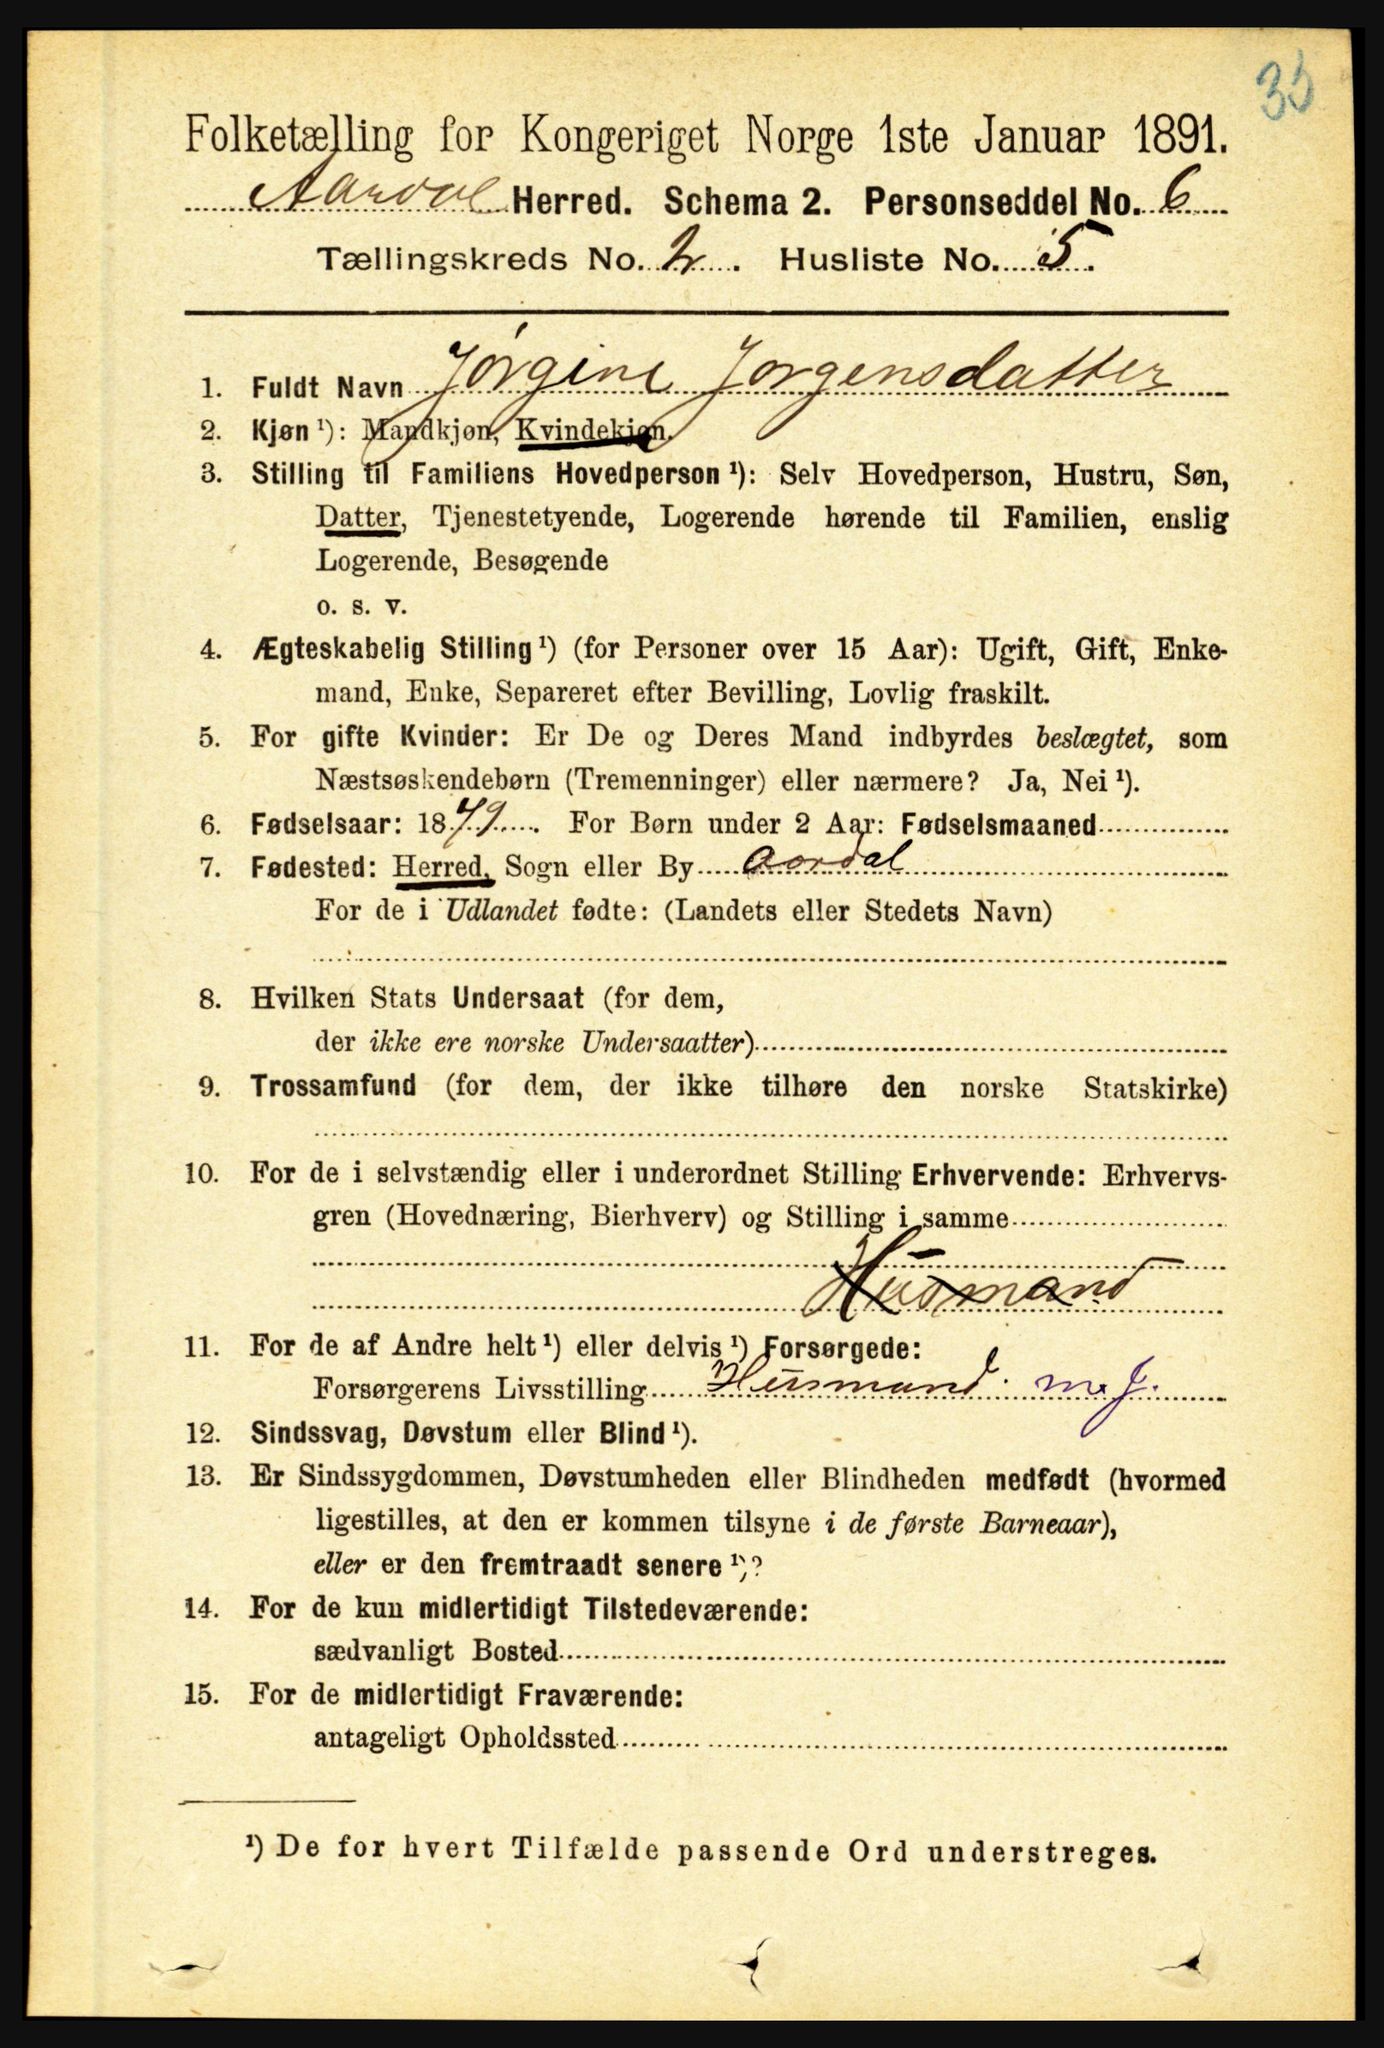 35
Folketælling for Kongeriget Norge 1ste Januar 1891.
Aardal Herred. Schema 2. Personseddel No. 6
Tællingskreds No. 2. Husliste No. 5.
1. Fuldt Navn Jørgine Jørgensdatter
2. Kjøn ¹): Mandkjøn, Kvindekjøn.
3. Stilling til Familiens Hovedperson ¹): Selv Hovedperson, Hustru, Søn,
Datter, Tjenestetyende, Logerende hørende til Familien, enslig
Logerende, Besøgende
o. s. v.
4. Ægteskabelig Stilling ¹) (for Personer over 15 Aar): Ugift, Gift, Enke-
mand, Enke, Separeret efter Bevilling, Lovlig fraskilt.
5. For gifte Kvinder: Er De og Deres Mand indbyrdes beslægtet, som
Næstsøskendebørn (Tremenninger) eller nærmere? Ja, Nei ¹).
6. Fødselsaar: 1879. For Børn under 2 Aar: Fødselsmaaned
7. Fødested: Herred, Sogn eller By Aardal
For de i Udlandet fødte: (Landets eller Stedets Navn)
8. Hvilken Stats Undersaat (for dem,
der ikke ere norske Undersaatter)
9. Trossamfund (for dem, der ikke tilhøre den norske Statskirke)
10. For de i selvstændig eller i underordnet Stilling Erhvervende: Erhvervs-
gren (Hovednæring, Bierhverv) og Stilling i samme
Husmand
11. For de af Andre helt ¹) eller delvis ¹) Forsørgede:
Forsørgerens Livsstilling Husmand m. J.
12. Sindssvag, Døvstum eller Blind ¹).
13. Er Sindssygdommen, Døvstumheden eller Blindheden medfødt (hvormed
ligestilles, at den er kommen tilsyne i de første Barneaar),
eller er den fremtraadt senere ¹)?
14. For de kun midlertidigt Tilstedeværende:
sædvanligt Bosted
15. For de midlertidigt Fraværende:
antageligt Opholdssted
¹) De for hvert Tilfælde passende Ord understreges.